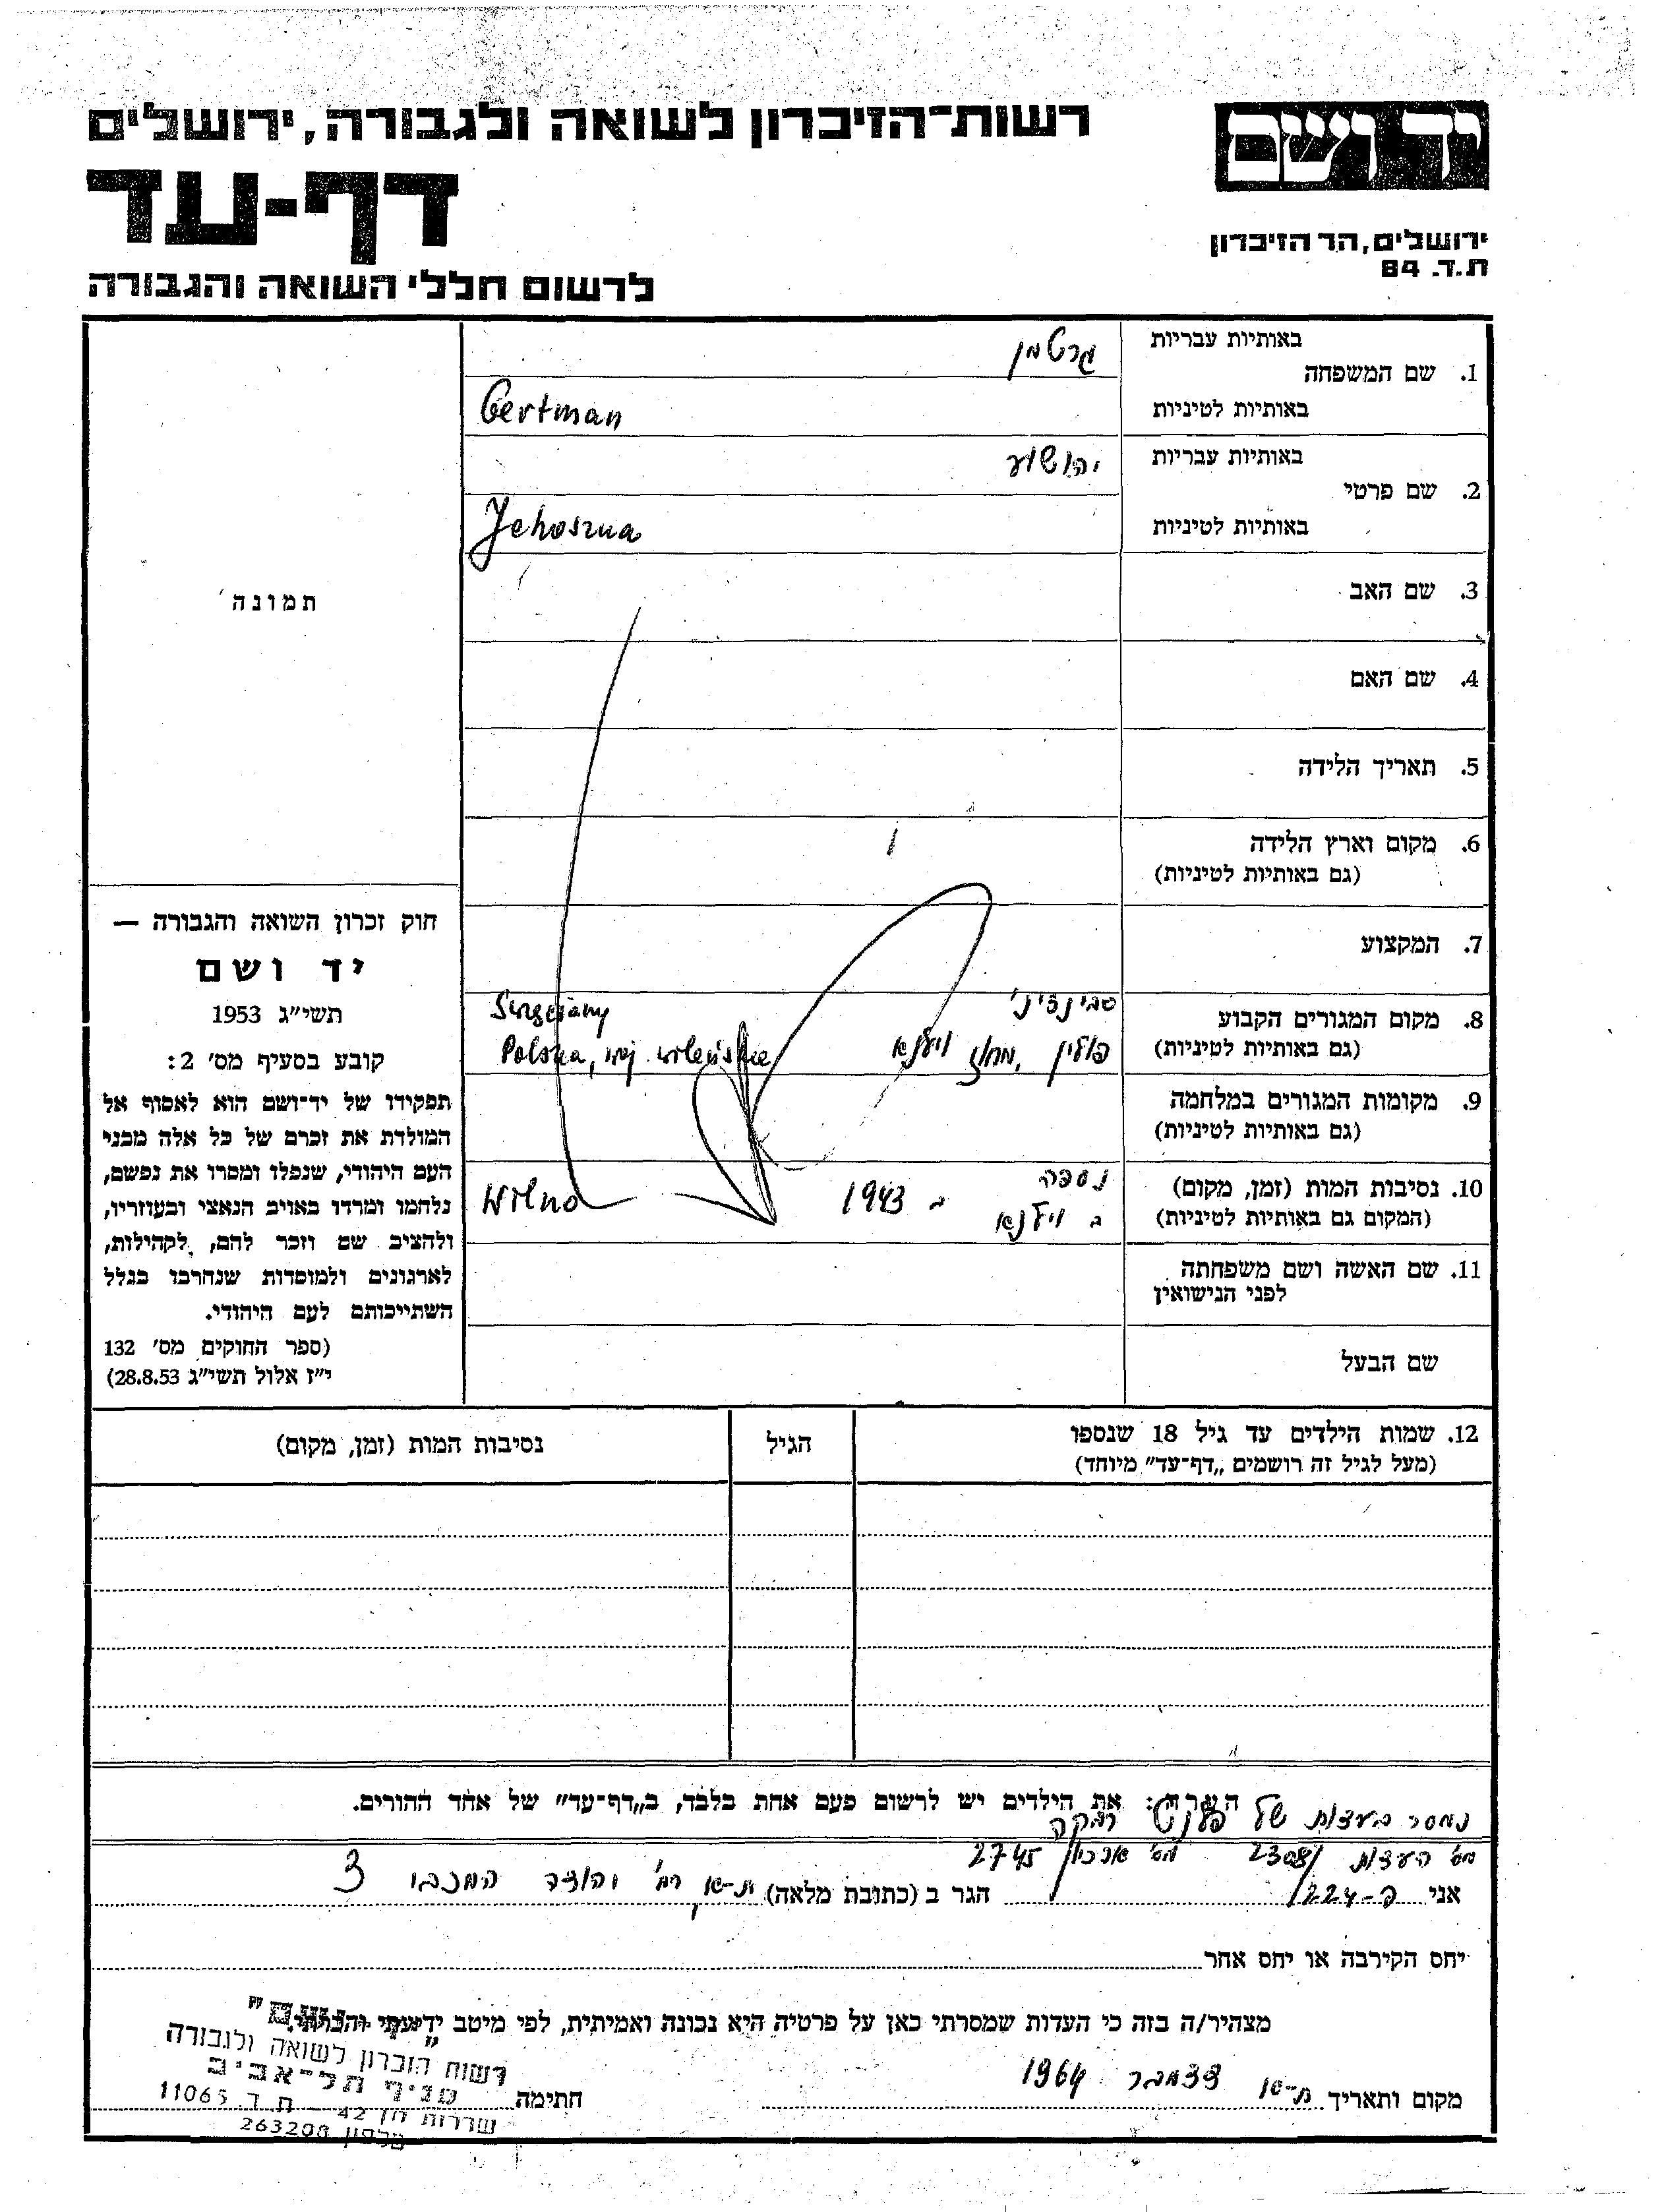 יד ושם
רשות־הזיכרון לשואה ולגבורה, ירושלים
דף-עד
לרשום חללי השואה והגבורה
ירושלים, הר הזיכרון
ת.ד. 84
באותיות עבריות
גרטמן
1. שם המשפחה
באותיות לטיניות
Gertman
באותיות עבריות
יהושוע
2. שם פרטי
באותיות לטיניות
Jehoszua
3. שם האב
תמונה
4. שם האם
5. תאריך הלידה
6. מקום וארץ הלידה
(גם באותיות לטיניות)
7. המקצוע
8. מקום המגורים הקבוע
(גם באותיות לטיניות)
פולין, מחוז וילנא
Polska, woj. wileńskie
9. מקומות המגורים במלחמה
(גם באותיות לטיניות)
10. נסיבות המות (זמן, מקום)
(המקום גם באותיות לטיניות)
נספה
ב וילנא
ב 1943
Wilno
11. שם האשה ושם משפחתה
לפני הנישואין
שם הבעל
חוק זכרון השואה והגבורה —
יד ושם
תשי״ג 1953
קובע בסעיף מס׳ 2:
תפקידו של יד־ושם הוא לאסוף אל
המולדת את זכרם של כל אלה מבני
העם היהודי, שנפלו ומסרו את נפשם,
נלחמו ומרדו באויב הנאצי ובעוזריו,
ולהציב שם וזכר להם, לקהילות,
לארגונים ולמוסדות שנחרבו בגלל
השתייכותם לעם היהודי.
(ספר החוקים מס׳ 132
י״ז אלול תשי״ג 28.8.53)
12. שמות הילדים עד גיל 18 שנספו
(מעל לגיל זה רושמים „דף־עד״ מיוחד)
הגיל
נסיבות המות (זמן, מקום)
הערה: את הילדים יש לרשום פעם אחת בלבד, ב„דף־עד״ של אחד ההורים.
נמסר בעדות של רבקה
מס׳ העדות 2308/ מס׳ ארכיון 2745
אני פ-224/ הגר ב (כתובת מלאה) ת-א 3
יחס הקירבה או יחס אחר
מצהיר/ה בזה כי העדות שמסרתי כאן על פרטיה היא נכונה ואמיתית, לפי מיטב ידיעתי והכרתי.
מקום ותאריך ת-א דצמבר 1964
חתימה
רשות הזכרון לשואה ולגבורה
סניף תל-אביב
שדרות חן 42 – ת.ד. 11065
טלפון 263208